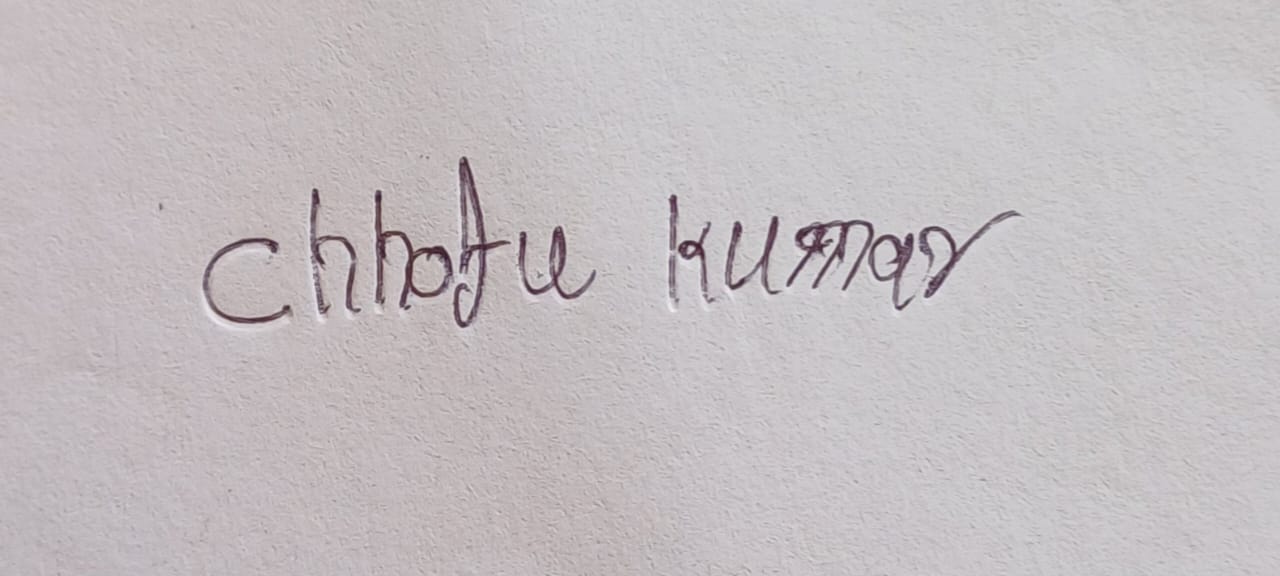 Chhotu kumar